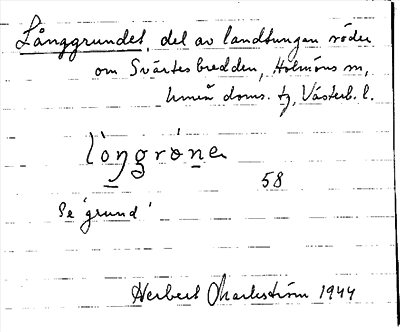 Långgrundet, del av landtungen söder
om Svärtesbredden, Holmöns sn,
Umeå doms. tg, Västerb. l.
lòŋgróne
58
Se 'grund'
Herbert Markström 1944